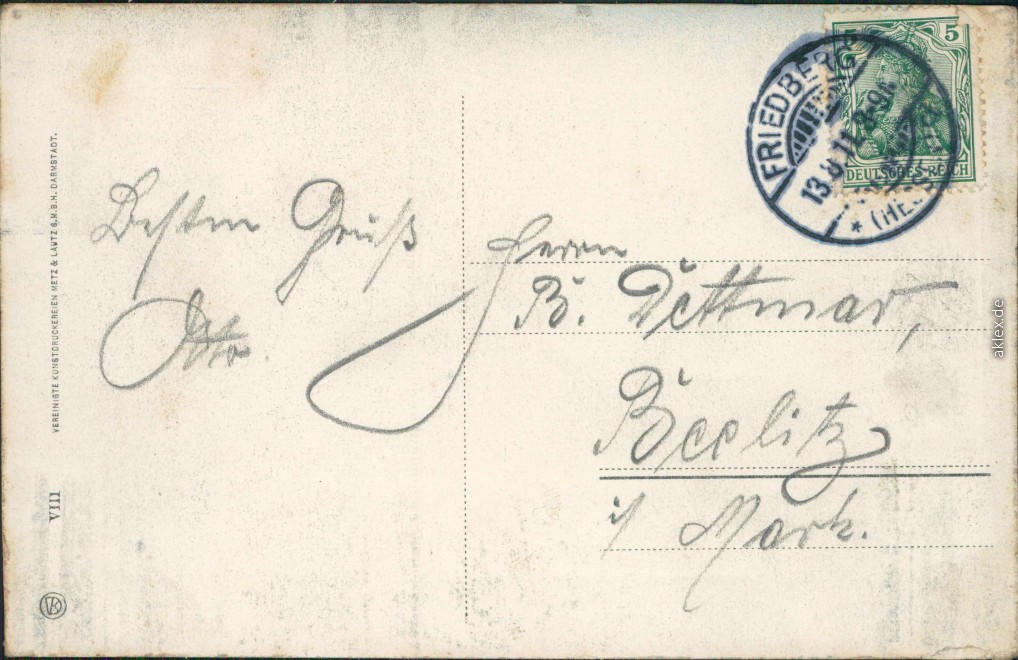 VEREINIGTE KUNSTDRUCKEREIEN METZ & LAUTZ G.M.B.H. DARMSTADT.
VIII
VK
Besten Gruß
Otto
Herrn
B. Dettmar,
Beelitz
i/ Mark.
5
DEUTSCHES REICH
FRIEDBERG
13.8.11.8-9
* (HES
aklex.de